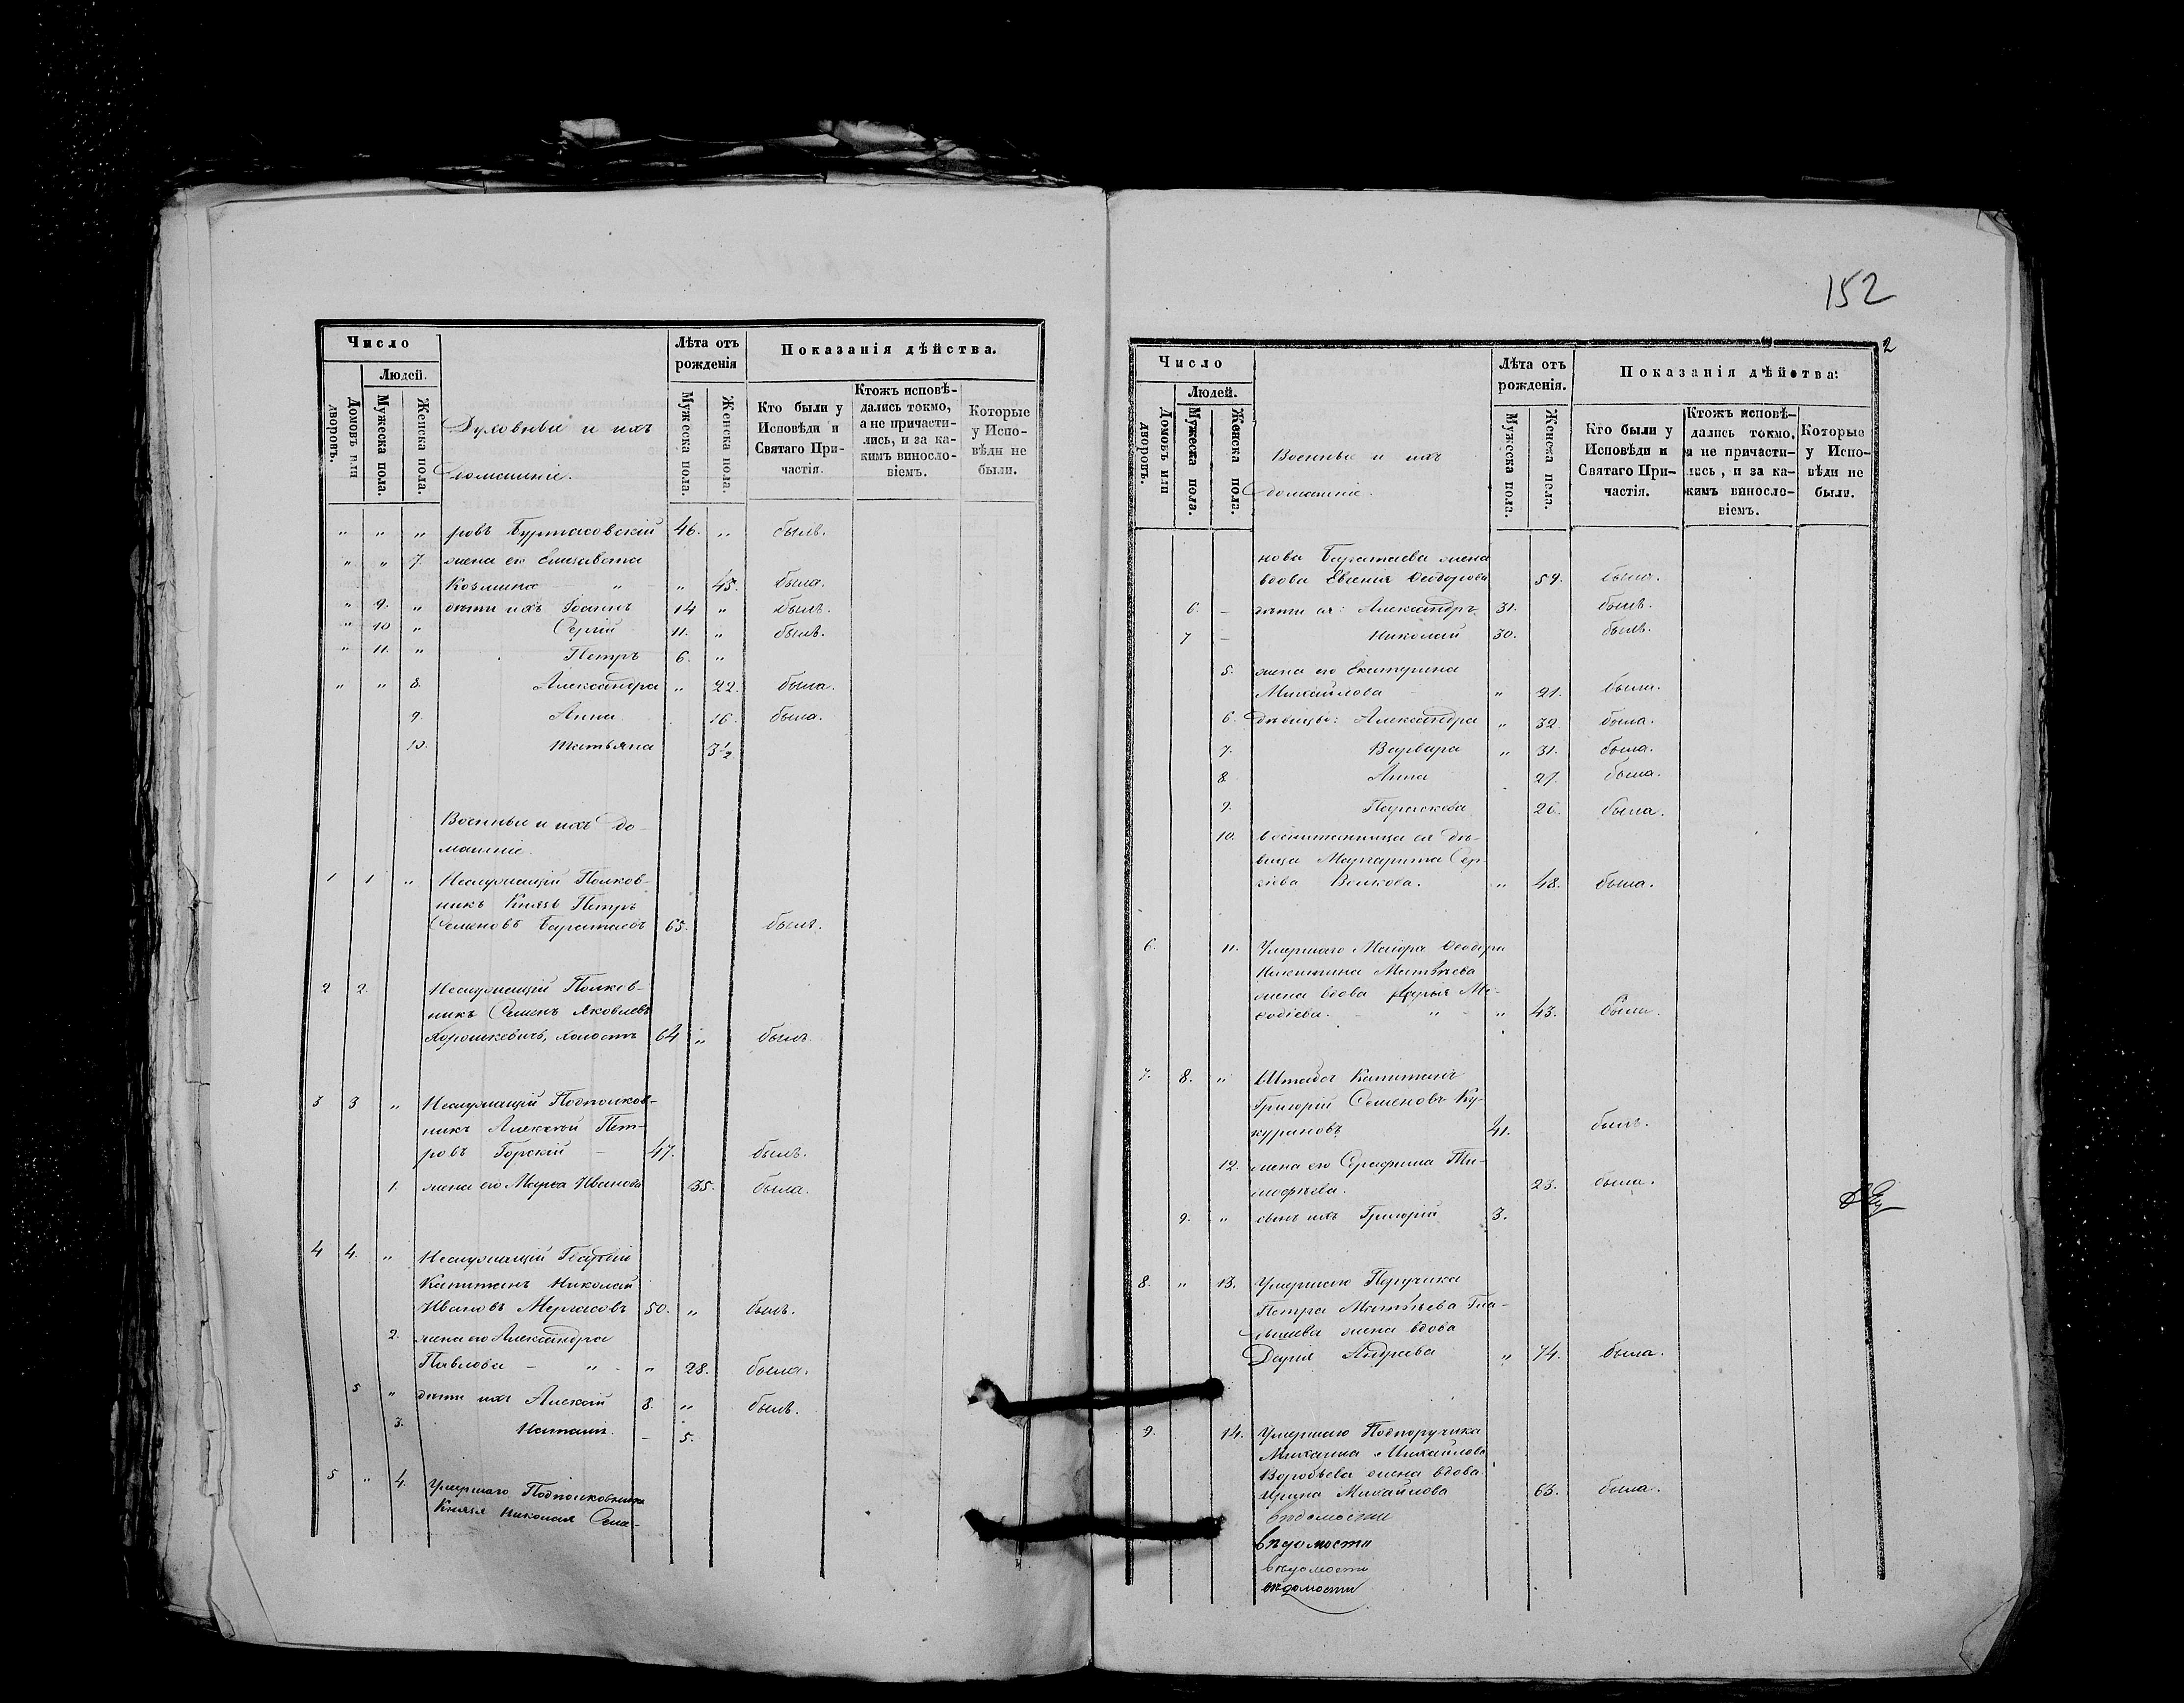 Число
Людей.
Домовъ или дворовъ.
Мужеска пола.
Женска пола.
Духовные и ихъ
домашніе.
Лѣта отъ рожденія
Мужеска пола.
Женска пола.
Показанія дѣйства.
Кто были у Исповѣди и Святаго Причастія.
Ктожъ исповѣдались токмо, а не причастились, и за какимъ винословіемъ.
Которые у Исповѣди не были.
" " " ровъ Буртасовскій 46. " былъ.
" " 7. жена его Елисавета
Козмина " " 45. была.
" 9. " дѣти ихъ Іоаннъ 14 " былъ.
" 10 " Сергій 11. " былъ.
" 11. " Петръ 6. "
" " 8. Александра " 22. была.
9. Анна 16. была.
10. Татьяна 3 1/2
Военные и ихъ до-
машніе.
1 1 " Неслужащій Полков-
никъ Князь Петръ
Семеновъ Баратаевъ 65. былъ.
2 2. Неслужащій Полков-
никъ Семенъ Яковлевъ
Хорошкевичъ, холостъ 64 " былъ.
3 3 " Неслужащій Подполков-
никъ Алексѣй Пет-
ровъ Горскій — 47. былъ.
1. жена его Марѳа Иванова 35. была.
4 4. " Неслужащій
Капитанъ Николай
Ивановъ Мергасовъ 50. " былъ.
2. жена его Александра
Павлова — " - " 28. была.
5 " дѣти ихъ Алексій 8. " былъ.
3. Наталія. — 5.
5 " 4. Умершаго Подполковника
Князя Николая Семе-
152
2
Число
Людей.
Домовъ или дворовъ.
Мужеска пола.
Женска пола.
Военные и ихъ
домашніе.
Лѣта отъ рожденія.
Мужеска пола.
Женска пола.
Показанія дѣйства:
Кто были у Исповѣди и Святаго Причастія.
Ктожъ исповѣдались токмо, а не причастились, и за какимъ винословіемъ.
Которые у Исповѣди не были.
нова Баратаева жена
вдова Евгенія Ѳеодорова 59. была.
6. — дѣти ея: Александръ 31. былъ.
7 — Николай 30. былъ.
5. жена его Екатерина
Михайлова — " 21. была.
6. дѣвицы: Александра " 32. была.
7. Варвара " 31. была.
8. Анна 27. была.
9. Параскева 26. была.
10. воспитанница ея дѣ-
вица Маргарита Сер-
гіева Волкова. " 48. была.
6. 11. Умершаго Маіора Ѳеодора
Никитина Матвѣева
жена вдова Дарья Ме-
ѳодіева. — " - " 43. была.
7. 8. " Штабсъ Капитанъ
Григорій Семеновъ Ку-
курановъ 41. былъ.
12. жена его Серафима Ти-
мофѣева. 23. была.
9. " сынъ ихъ Григорій 3.
8. " 13. Умершаго Поручика
Петра Матвѣева Гла-
дышева жена вдова
Дарія Андреева " 74. была.
9. 14. Умершаго Подпоручика
Михаила Михайлова
Воробьева жена вдова
Ирина Михайлова 63. была.
вѣдомости
вѣдомости
вѣдомости
вѣдомости